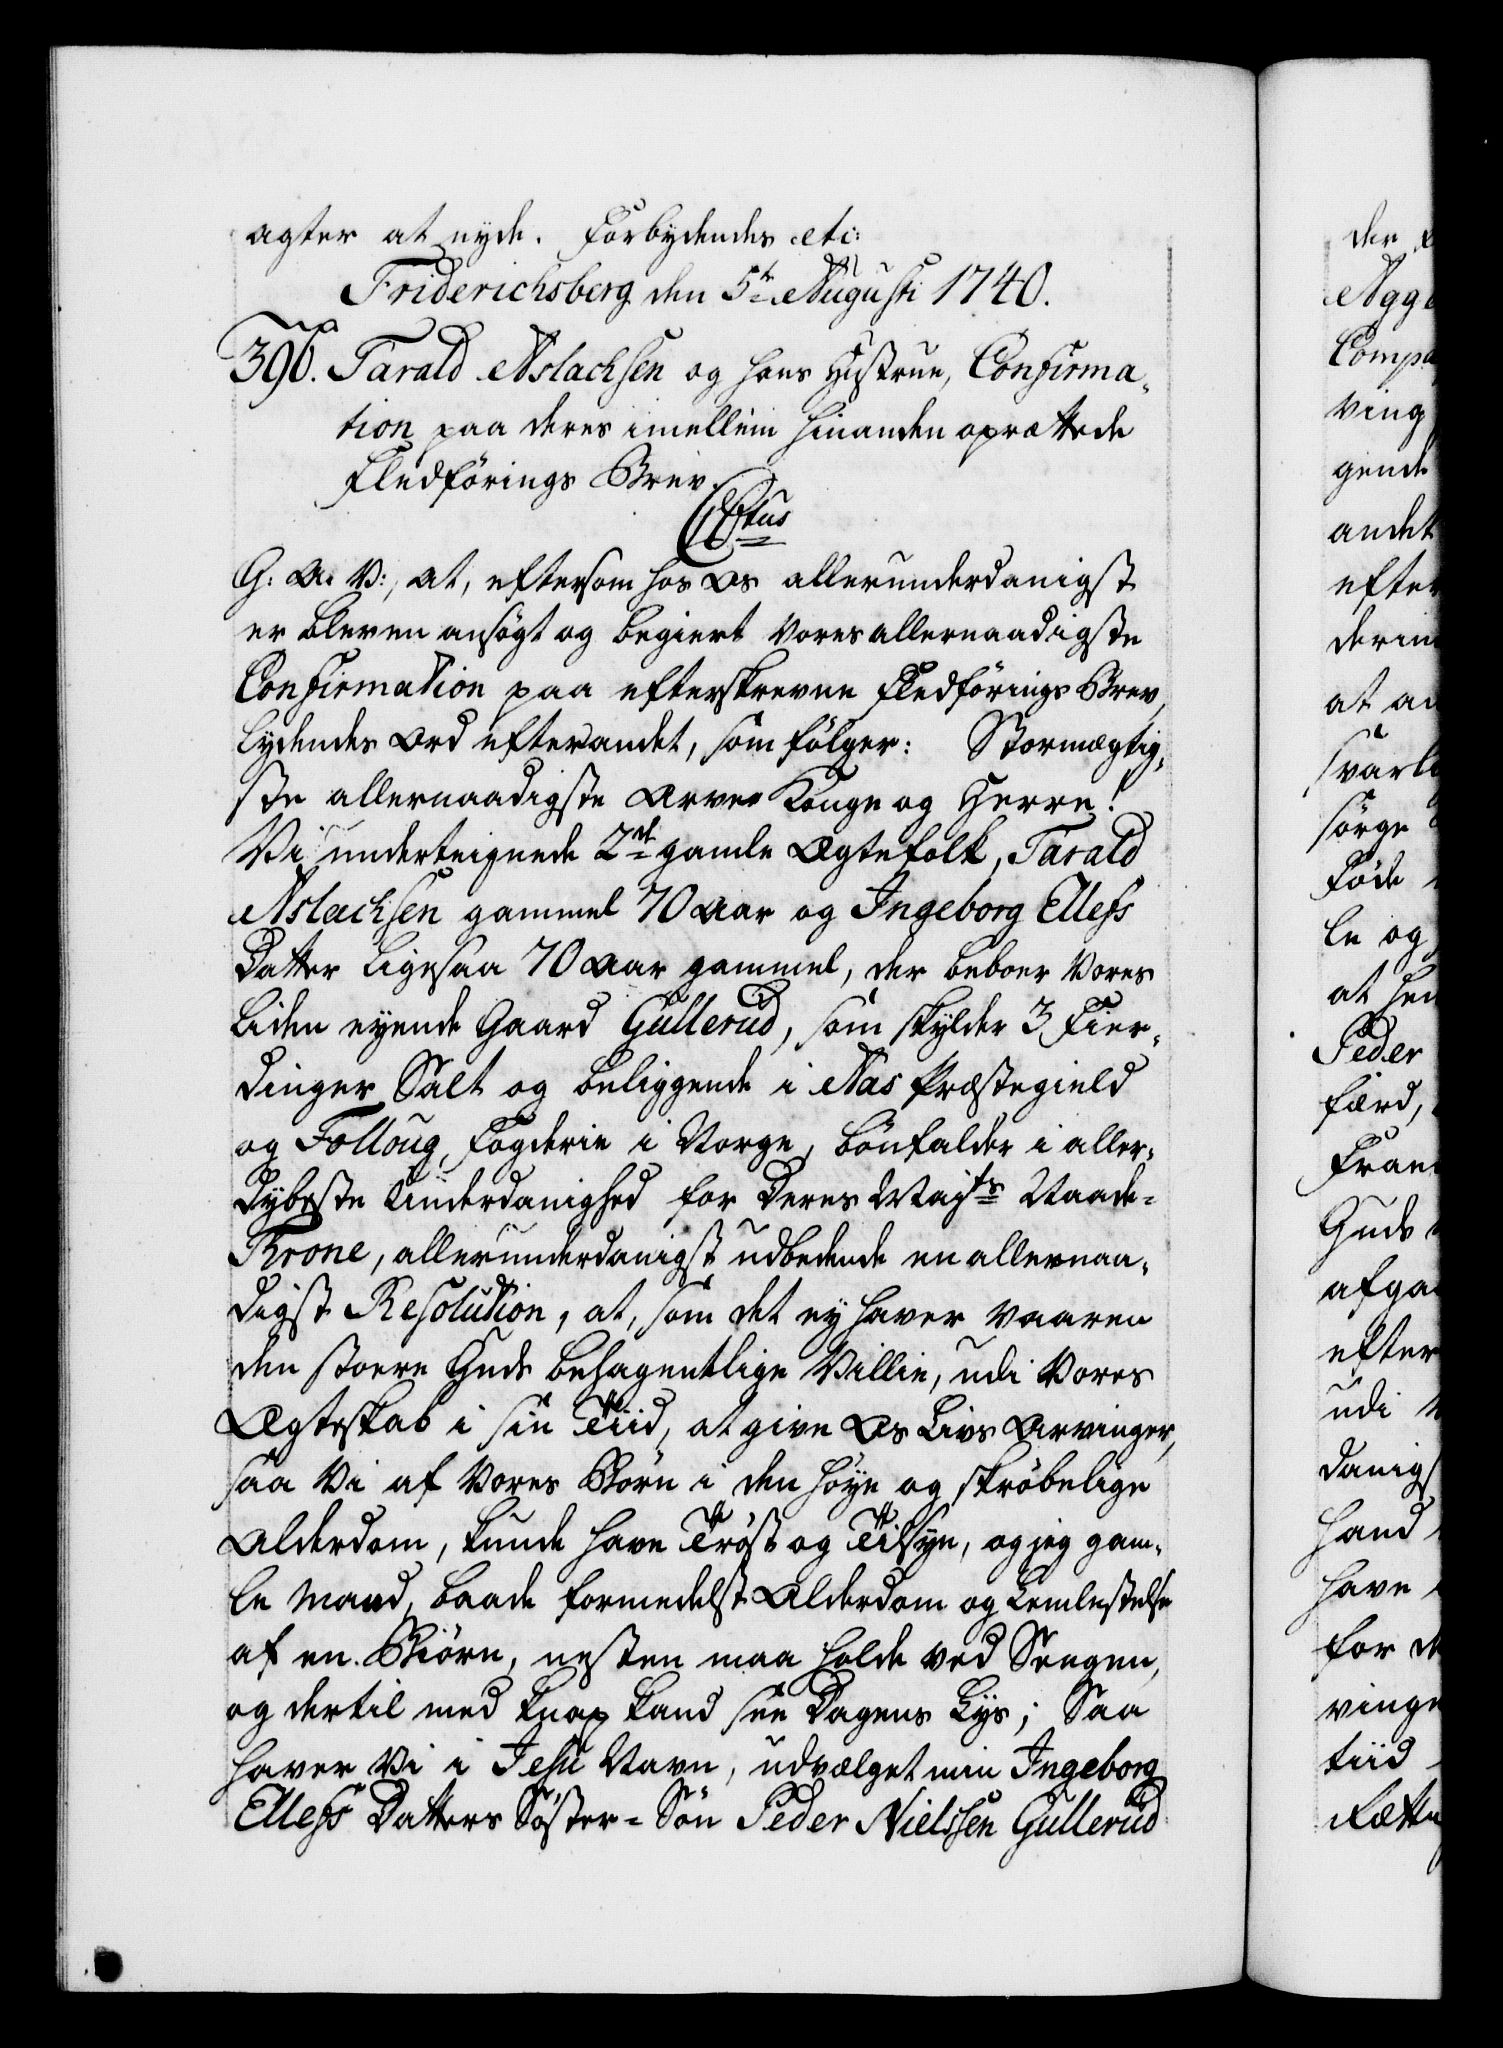 agter at nyde. Forbydendes etc:
Friderichsberg den 5te Augusti 1740.
396. Tarald Aslachsen og hans Hustrue, Confirma-
tion paa deres imellem hinanden oprættede
Fledförings Brev.
CPtus
G: A: V:, at, eftersom hos Os allerunderdanigst
er bleven ansögt og begiert Vores allernaadigste
Confirmation paa efterskrevne Fledförings Brev,
lydendes Ord efter andet, som fölger: Stormægtig-
ste allernaadigste Arve Konge og Herre!
Vi underteignede 2de gamle Ægtefolk, Tarald
Aslachsen gammel 70 Aar og Ingeborg Ellefs
Datter ligesaa 70 Aar gammel, der beboer Vores
liden eyende Gaard Gullerud, som skylder 3 Fier-
dinger Salt og beliggende i Nas Præstegield
og Folloug Fogderie i Norge, bönfalder i aller-
dybeste Underdanighed for Deres Mayts Naade-
Throne, allerunderdanigst udbedende en allernaa-
digst Resolution, at, som det ey haver vaaren
den stoere Guds behagentlige Villie, udi Vores
Ægteskab i sin Tiid, at give Os Livs Arvinger,
saa Vi af Vores Börn i den höye og skröbelige
Alderdom, kunde have Tröst og Tilsyn, og jeg gam-
le Mand, baade formedelst Alderdom og Lemlestelse
af en Biörn, nesten maa holde ved Sengen,
og dertil med knap kand see Dagens Lys; Saa
haver Vi i Jesu Navn, udvælget min Ingeborg
Ellefs Datters Söster-Sön Peder Nielssen Gullerud